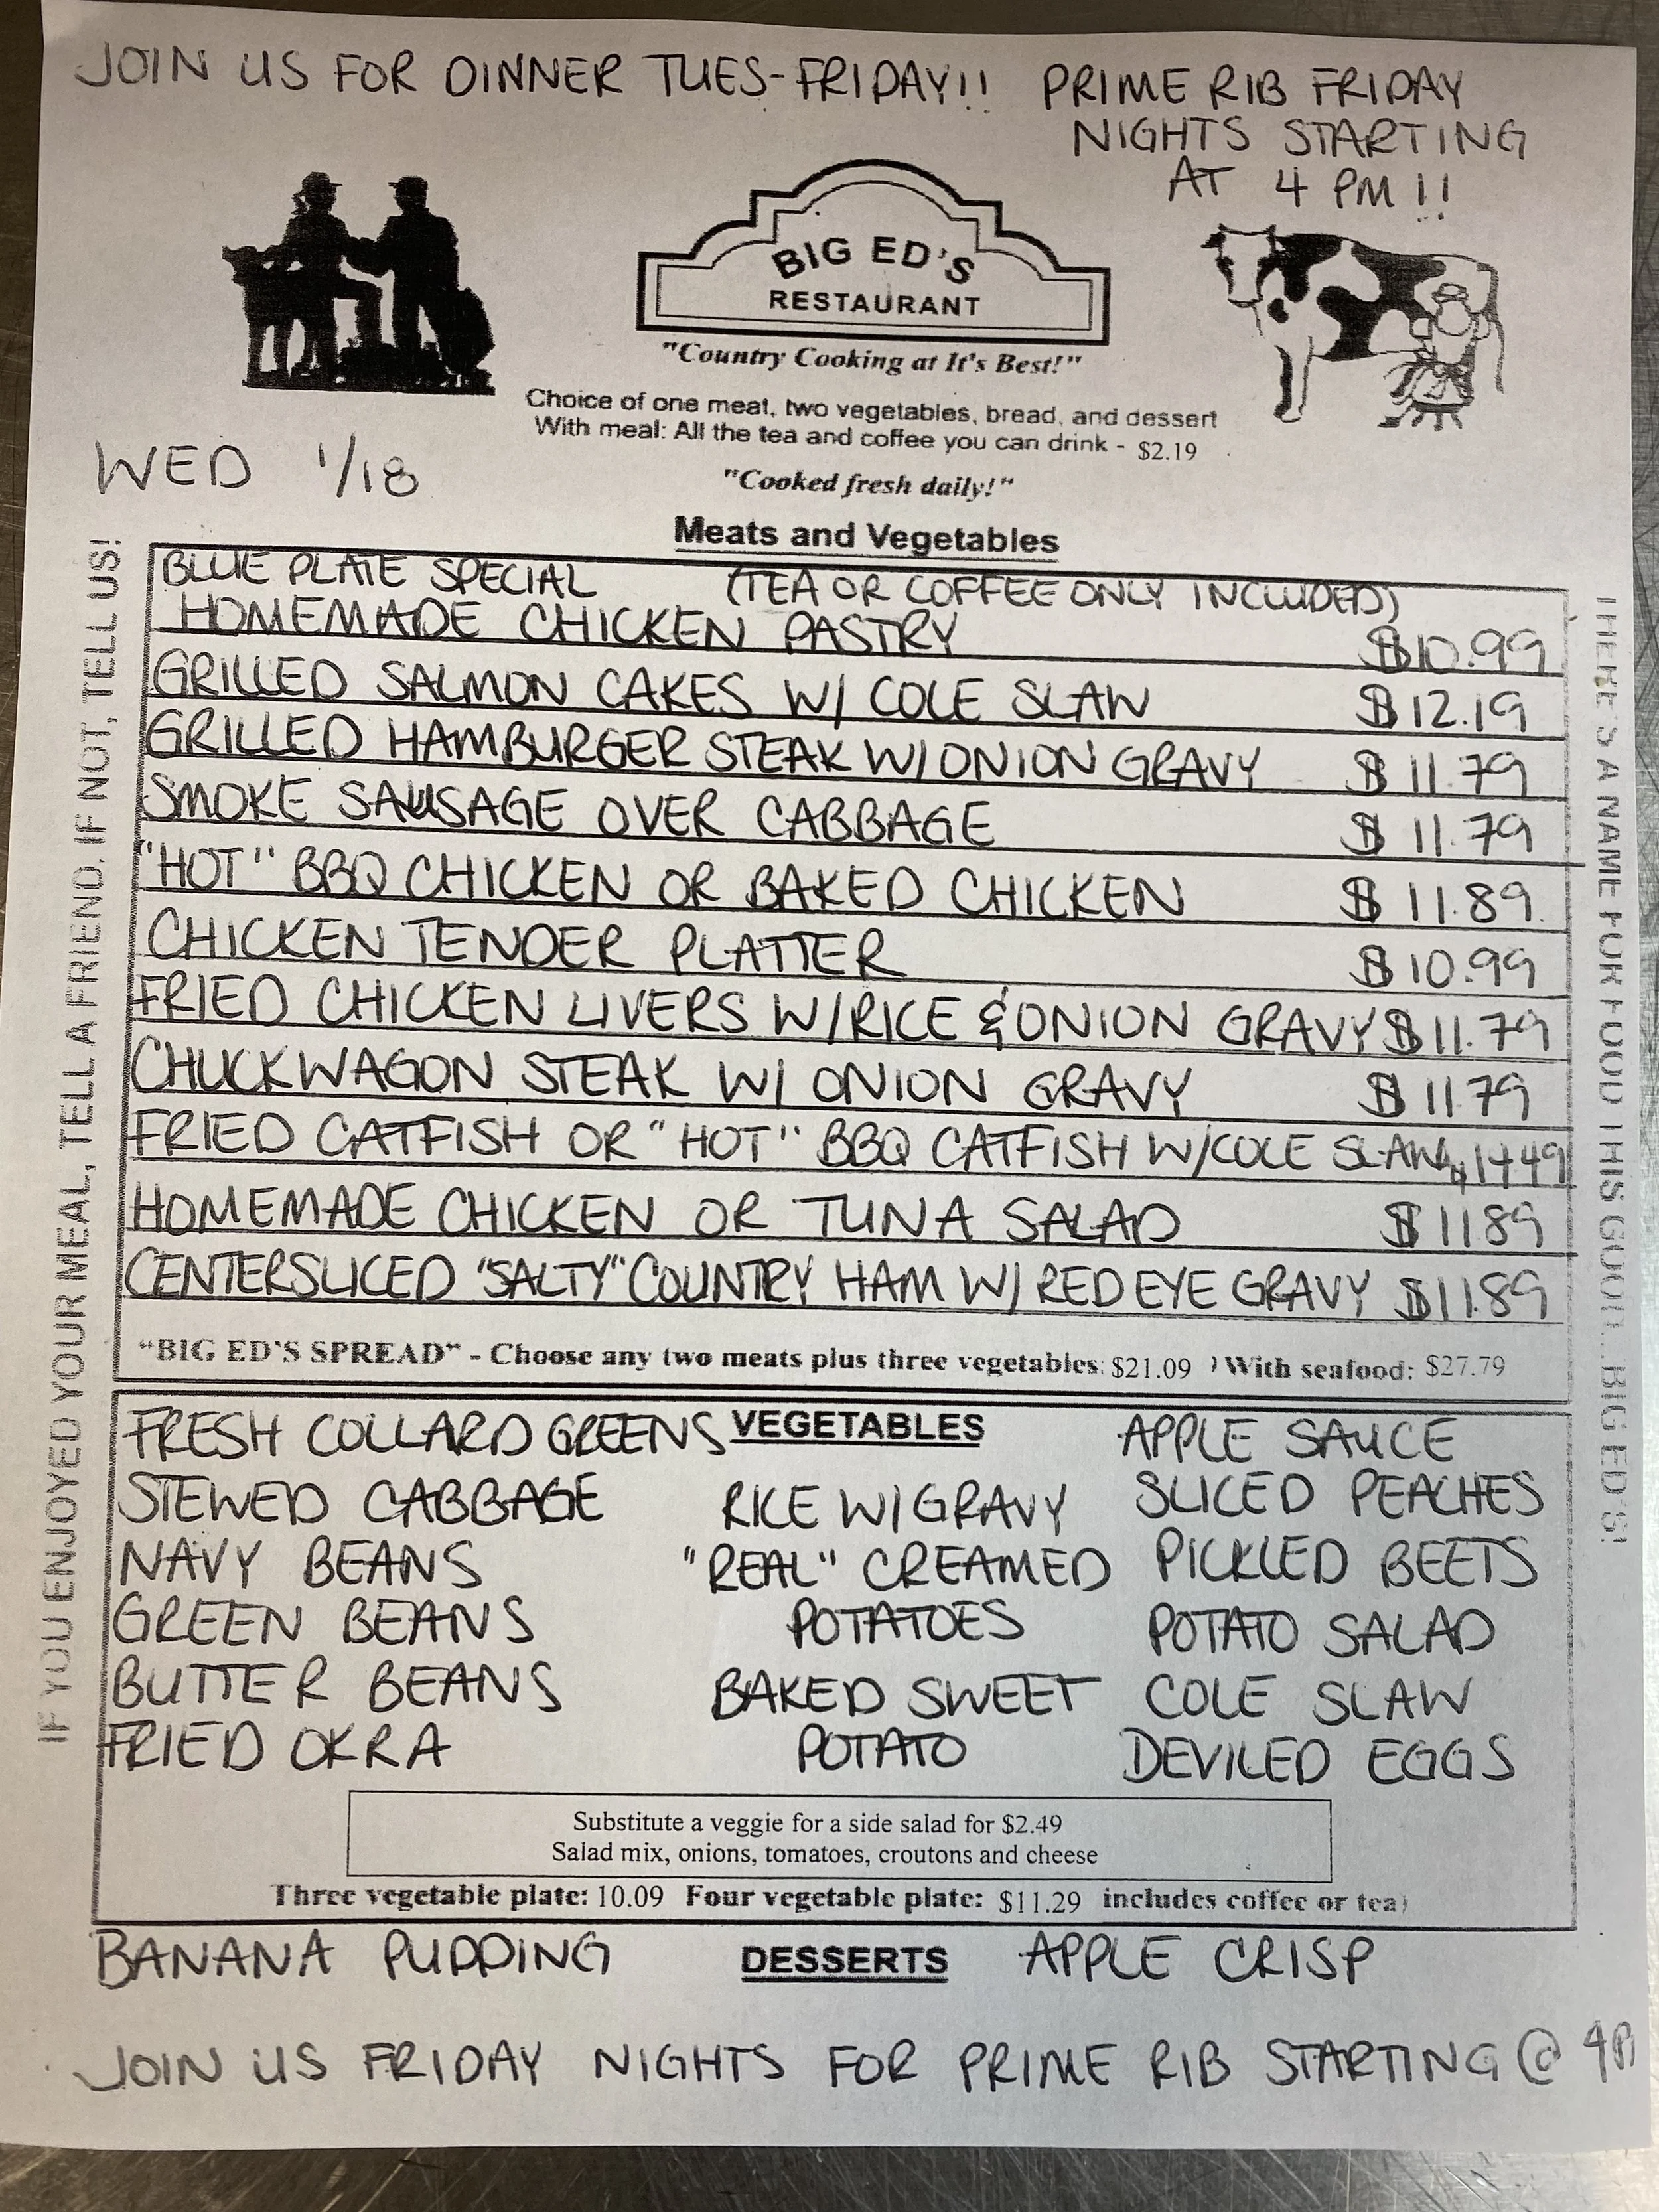 JOIN US FOR DINNER TUES-FRIDAY!! PRIME RIB FRIDAY
NIGHTS STARTING
AT 4 PM!!
BIG ED'S
RESTAURANT
"Country Cooking at It's Best!"
Choice of one meat, two vegetables, bread, and dessert
With meal: All the tea and coffee you can drink - $2.19
WED 1/18
"Cooked fresh daily!"
Meats and Vegetables
BLUE PLATE SPECIAL (TEA OR COFFEE ONLY INCLUDED)
HOMEMADE CHICKEN PASTRY $10.99
GRILLED SALMON CAKES W/ COLE SLAW $12.19
GRILLED HAMBURGER STEAK W/ONION GRAVY $11.79
SMOKE SAUSAGE OVER CABBAGE $11.79
"HOT" BBQ CHICKEN OR BAKED CHICKEN $11.89
CHICKEN TENDER PLATTER $10.99
FRIED CHICKEN LIVERS W/RICE & ONION GRAVY $11.79
CHUCKWAGON STEAK W/ ONION GRAVY $11.79
FRIED CATFISH OR "HOT" BBQ CATFISH W/COLE SLAW $14.49
HOMEMADE CHICKEN OR TUNA SALAD $11.89
CENTERSLICED "SALTY" COUNTRY HAM W/ RED EYE GRAVY $11.89
"BIG ED'S SPREAD" - Choose any two meats plus three vegetables: $21.09 ) With seafood: $27.79
IF YOU ENJOYED YOUR MEAL, TELL A FRIEND, IF NOT, TELL US!
THERE'S A NAME FOR FOOD THIS GOOD... BIG ED'S!
FRESH COLLARD GREENS VEGETABLES APPLE SAUCE
STEWED CABBAGE RICE W/GRAVY SLICED PEACHES
NAVY BEANS "REAL" CREAMED PICKLED BEETS
GREEN BEANS POTATOES POTATO SALAD
BUTTER BEANS BAKED SWEET COLE SLAW
FRIED OKRA POTATO DEVILED EGGS
Substitute a veggie for a side salad for $2.49
Salad mix, onions, tomatoes, croutons and cheese
Three vegetable plate: 10.09 Four vegetable plate: $11.29 includes coffee or tea)
BANANA PUDDING DESSERTS APPLE CRISP
JOIN US FRIDAY NIGHTS FOR PRIME RIB STARTING @